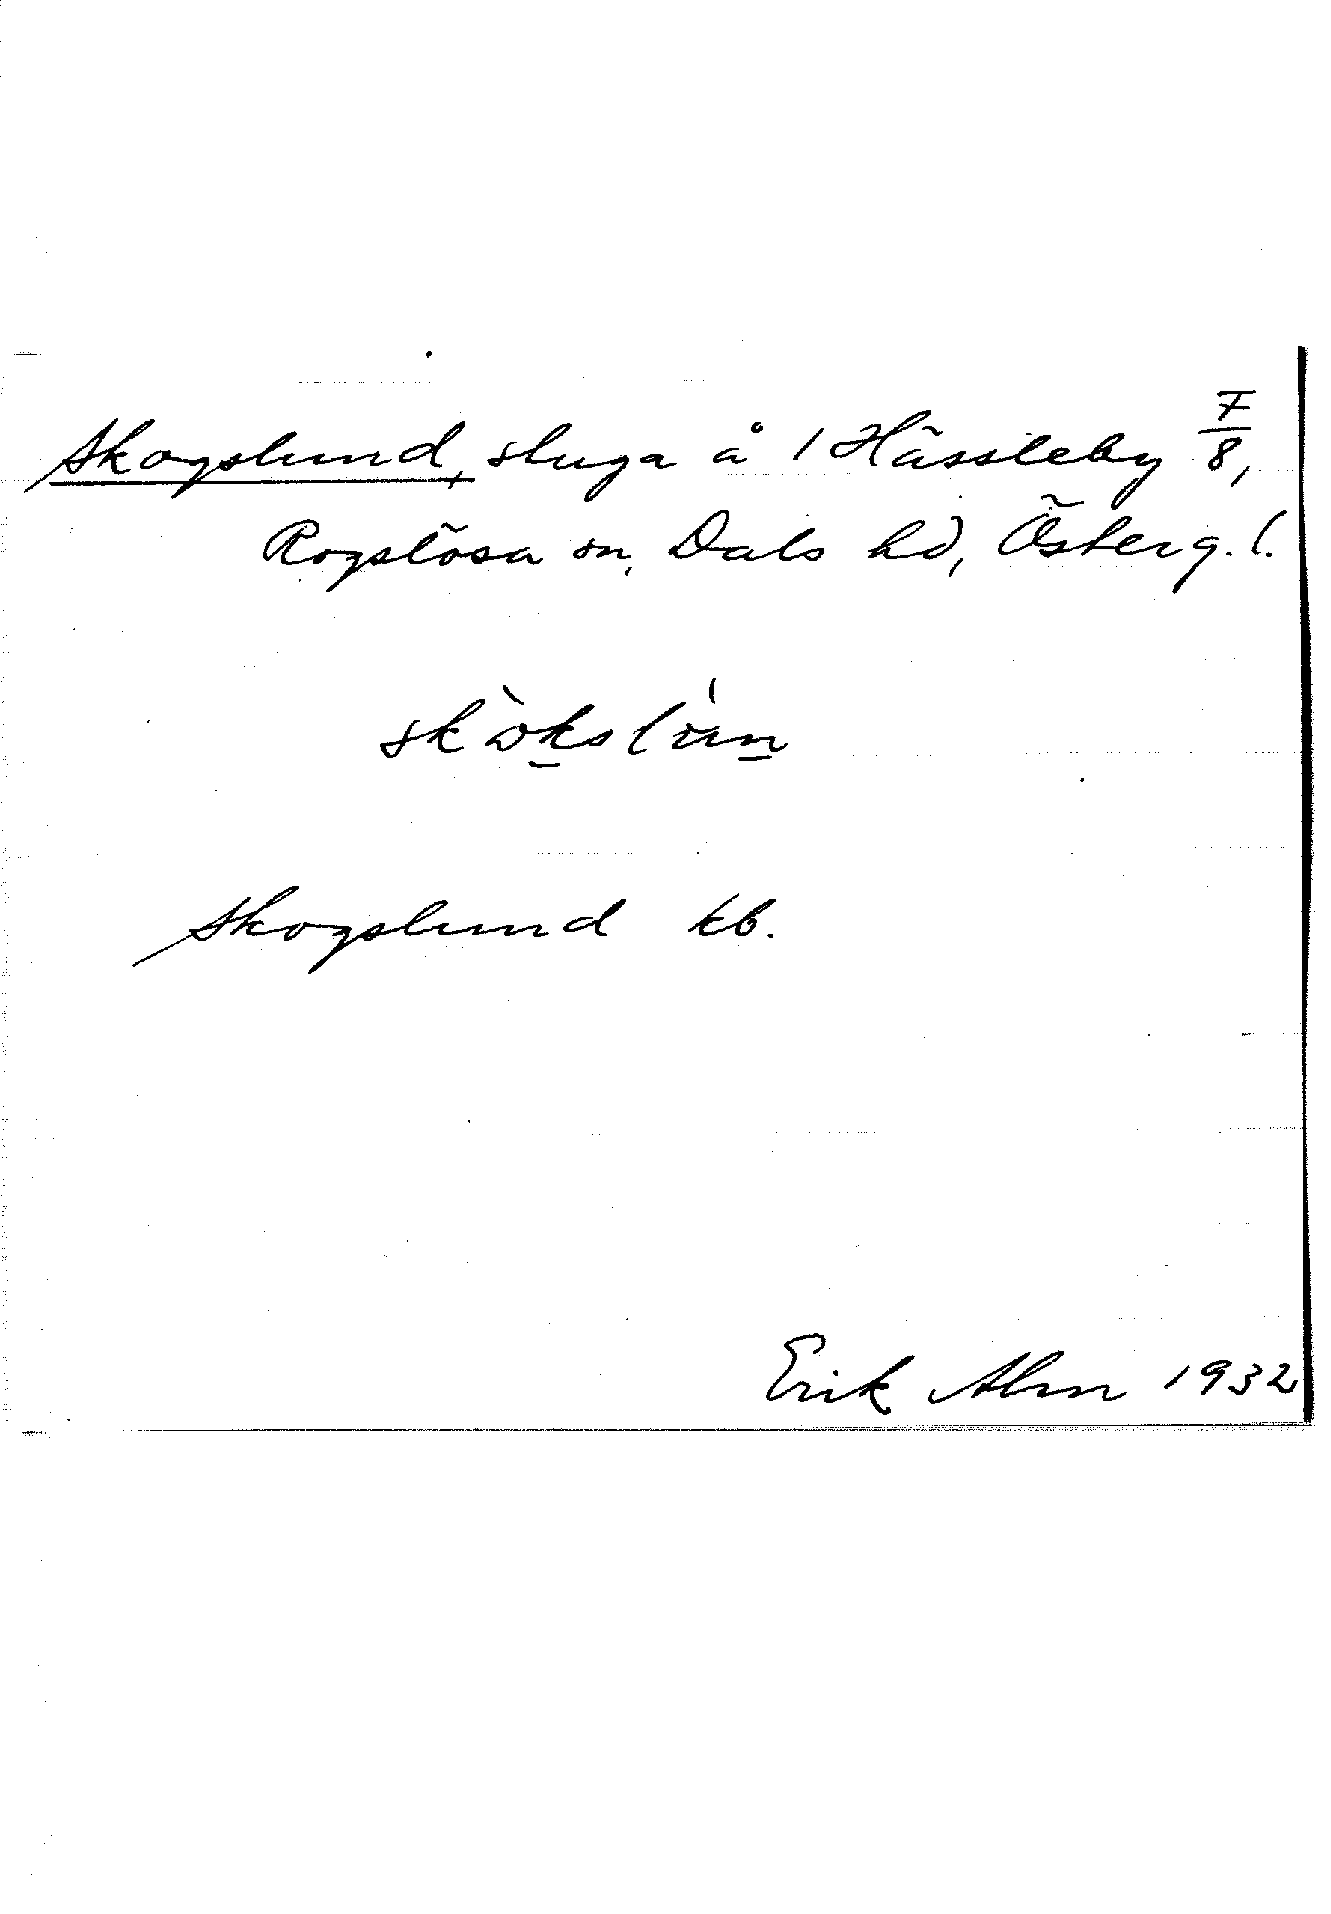 Skogslund, stuga å 1 Hässleby 7/8,
Rogslösa sn, Dals hd, Österg. l.
Skogslund kb.
Erik Alm 1932